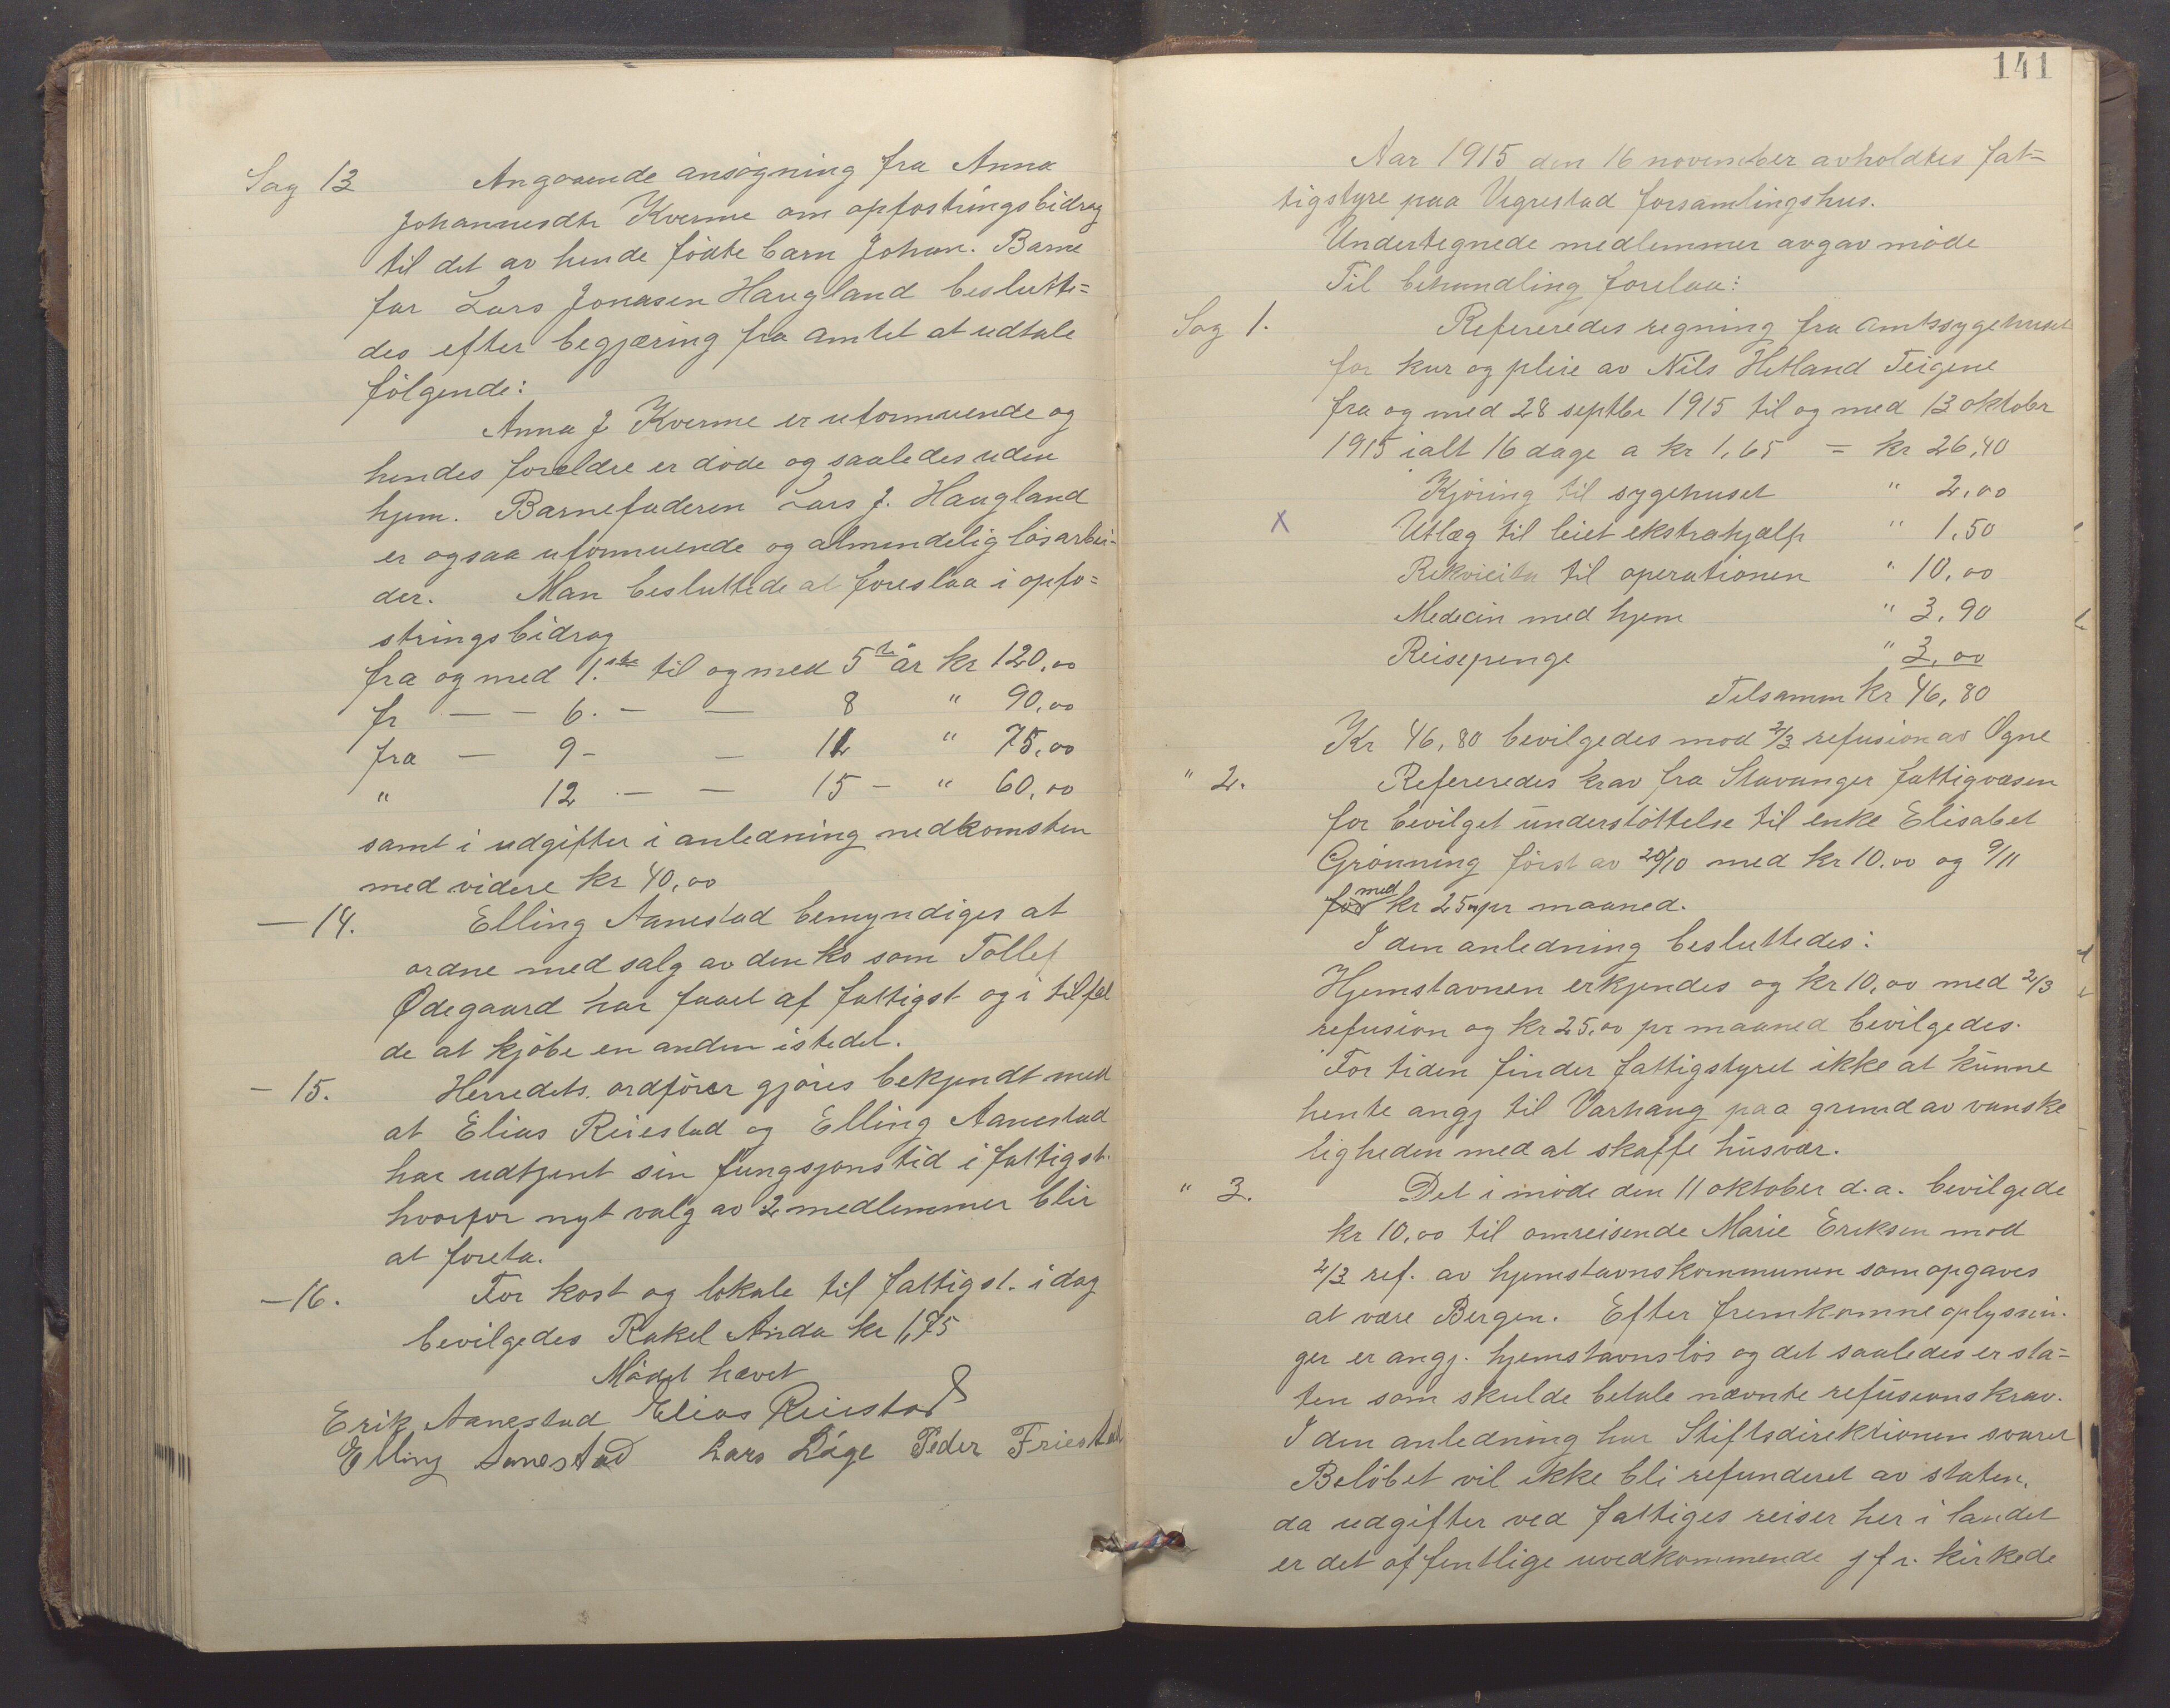 Sag 13 Angaaende ansøgning fra Anna
Johannesdtr Kverme om opfostringsbidrag
til det av hende fødte barn Johan. Barne
far Lars Jonasen Haugland beslutte=
des efter begjæring fra amtet at udtale
følgende:
Anna J Kverme er uformuende og
hendes forældre er døde og saaledes uden
hjem. Barnefaderen Lars J. Haugland
er ogsaa uformuende og almindelig løsarbei-
der. Man besluttede at foreslaa i opfo=
stringsbidrag
fra og med 1.ste til og med 5te år kr 120,00
fr — — 6. — — 8 " 90,00
fra — 9 - — 11 " 75,00
" 12 — — 15 — " 60,00
samt i udgifter i anledning nedkomsten
med videre kr 40,00
— 14. Elling Aanestad bemyndiges at
ordne med salg av den ko som Tollef
Ødegaard har faaet af fattigst og i tilfæl
de at kjøbe en anden istedet.
— 15. Herredets ordfører gjøres bekjendt med
at Elias Reiestad og Elling Aanestad
har udtjent sin fungsjonstid i fattigst.
hvorfor nyt valg av 2 medlemmer blir
at foreta.
— 16. For kost og lokale til fattigst. idag
bevilgedes Rakel Anda kr 1,75
Mødet hævet
Erik Aanestad Elias Reiestad
Elling Aanestad Lars Dåge Peder Friestad
141
Aar 1915 den 16 november avholdtes fat=
tigstyre paa Vigrestad forsamlingshus.
Undertegnede medlemmer avgav møde
Til behandling forelaa:
Sag 1. Refereredes regning fra amtssygehuset
for kur og pleie av Nils Hetland Teigene
fra og med 28 septbr 1915 til og med 13 oktobr
1915 ialt 16 dage a kr 1,65 = kr 26,40
Kjøring til sygehuset " 2,00
X Utlæg til leiet ekstrahjælp " 1,50
Rekvicita til operationen " 10,00
Medecin med hjem " 3,90
Reisepenge " 3,00
Tilsamm kr 46,80
Kr 46,80 bevilgedes mod 2/3 refusion av Ogne
" 2. Refereredes krav fra Stavanger fattigvæsen
for bevilget understøttelse til enke Elisabet
Grønning først av 20/10 med kr 10.00 og 9/11
for med kr 25 " pr maaned.
I den anledning besluttedes:
Hjemstavnen erkjendes og kr 10,00 med 2/3
refusion og kr 25.00 pr maaned bevilgedes.
For tiden finder fattigstyret ikke at kunne
hente angj til Varhaug paa grund av vanske
ligheden med at skaffe husvær.
" 3. Det i møde den 11 oktober d.a. bevilgede
kr 10,00 til omreisende Marie Eriksen mod
2/3 ref. av hjemstavnskommunen som opgaves
at være Bergen. Efter fremkomne oplysnin-
ger er angj. hjemstavnsløs og det saaledes er sta=
ten som skulde betale nævnte refusionskrav.
I den anledning har Stiftsdirektionen svaret
Beløbet vil ikke bli refunderet av staten,
da udgifter ved fattiges reiser her i landet
er det offentlige uvedkommende jfr. kirkede